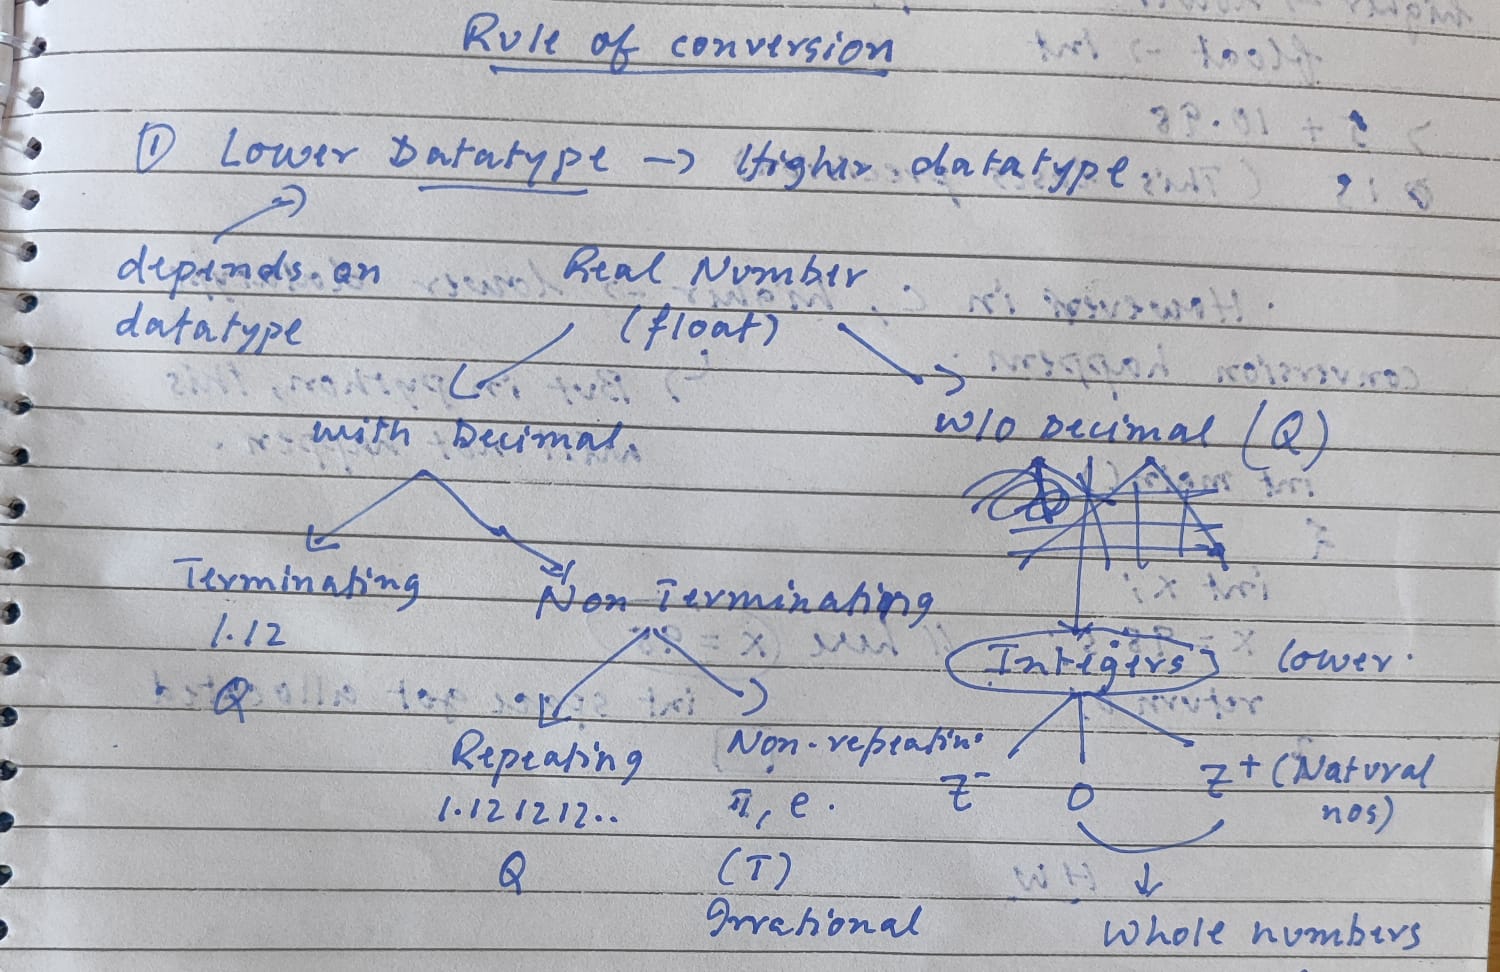 Rule of conversion
① Lower Datatype -> Higher datatype.
depends on
datatype
Real Number
(float)
with Decimal
w/o Decimal (Q)
Terminating
1.12
Q
Non Terminating
Integers
lower.
Repeating
1.121212..
Q
Non-repeatin
π, e.
(T)
Irrational
Z-
0
Z+ (Natural
nos)
Whole numbers